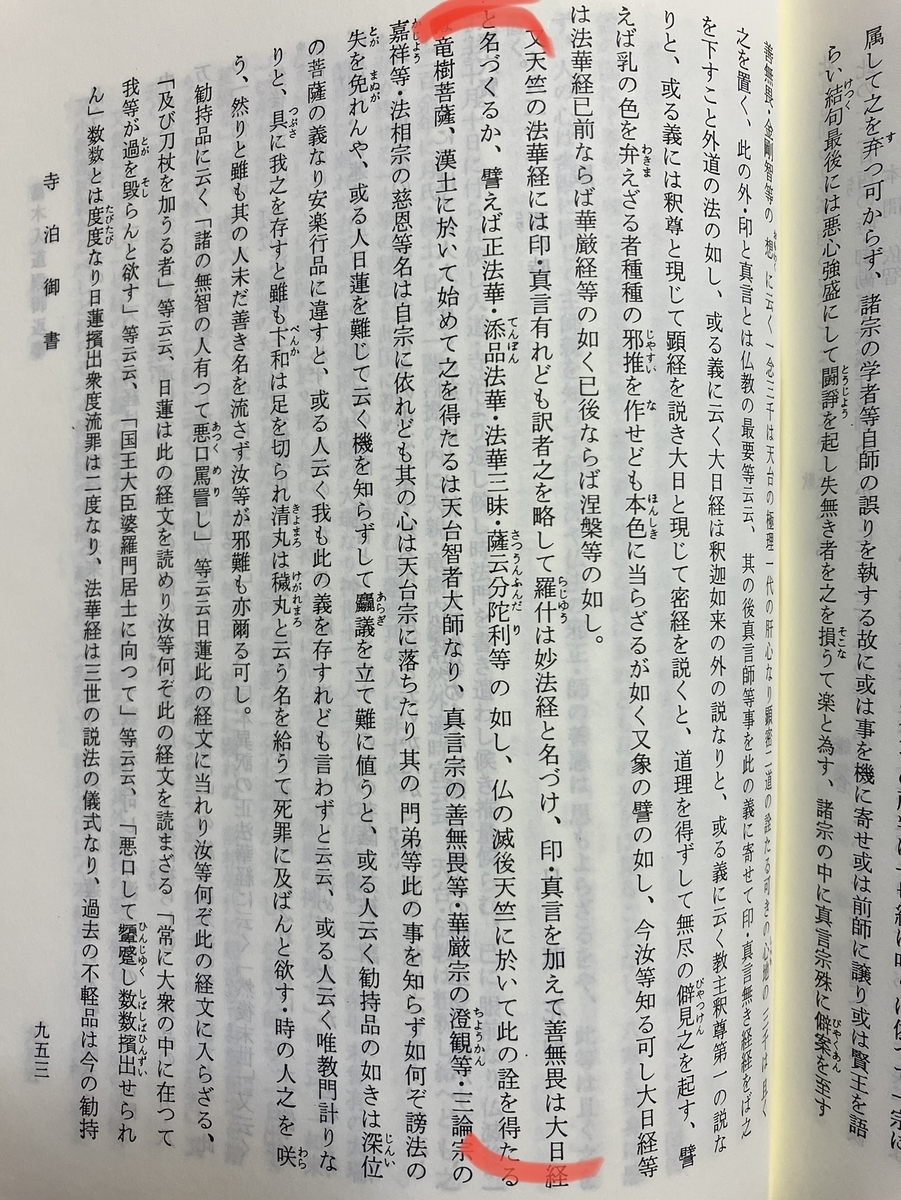 属して之を弃つ可からず、諸宗の学者等自師の誤りを執する故に或は事を機に寄せ或は前師に譲り或は賢王を語
らい結句最後には悪心強盛にして闘諍を起し失無き者を之を損うて楽と為す、諸宗の中に真言宗殊に僻案を至す
善無畏・金剛智等の想に云く一念三千は天台の極理一代の肝心なり顕密二道の詮たる可きの心地の三千は且く
之を置く、此の外・印と真言とは仏教の最要等云云、其の後真言師等事を此の義に寄せて印・真言無き経経をば之
を下すこと外道の法の如し、或る義に云く大日経は釈迦如来の外の説なりと、或る義に云く教主釈尊第一の説な
りと、或る義には釈尊と現じて顕経を説き大日と現じて密経を説くと、道理を得ずして無尽の僻見之を起す、譬
えば乳の色を弁えざる者種種の邪推を作せども本色に当らざるが如く又象の譬の如し、今汝等知る可し大日経等
は法華経已前ならば華厳経等の如く已後ならば涅槃等の如し。
又天竺の法華経には印・真言有れども訳者之を略して羅什は妙法経と名づけ、印・真言を加えて善無畏は大日経
と名づくるか、譬えば正法華・添品法華・法華三昧・薩云分陀利等の如し、仏の滅後天竺に於いて此の詮を得たる
竜樹菩薩、漢土に於いて始めて之を得たるは天台智者大師なり、真言宗の善無畏等・華厳宗の澄観等・三論宗の
嘉祥等・法相宗の慈恩等名は自宗に依れども其の心は天台宗に落ちたり其の門弟等此の事を知らず如何ぞ謗法の
失を免れんや、或る人日蓮を難じて云く機を知らずして麤議を立て難に値うと、或る人云く勧持品の如きは深位
の菩薩の義なり安楽行品に違すと、或る人云く我も此の義を存すれども言わずと云云、或る人云く唯教門計りな
りと、具に我之を存すと雖も卞和は足を切られ清丸は穢丸と云う名を給うて死罪に及ばんと欲す・時の人之を咲
う、然りと雖も其の人未だ善き名を流さず汝等が邪難も亦爾る可し。
勧持品に云く「諸の無智の人有つて悪口罵詈し」等云云日蓮此の経文に当れり汝等何ぞ此の経文に入らざる、
「及び刀杖を加うる者」等云云、日蓮は此の経文を読めり汝等何ぞ此の経文を読まざる「常に大衆の中に在つて
我等が過を毀らんと欲す」等云云、「国王大臣婆羅門居士に向つて」等云云、「悪口して顰蹙し数数擯出せられ
ん」数数とは度度なり日蓮擯出衆度流罪は二度なり、法華経は三世の説法の儀式なり、過去の不軽品は今の勧持
寺泊御書
九五三